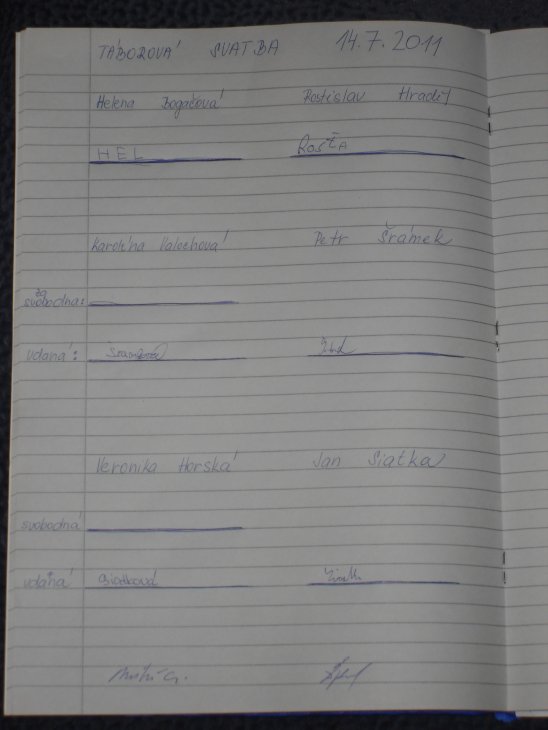 TÁBOROVÁ SVATBA 14.7.2011
Helena Bogačová Rostislav Hradil
HEL RosŤA
Karolína Valochová Petr Šrámek
za svobodna:
vdaná: Šramková
Veronika Horská Jan Siatka
svobodná
vdaná Siatková